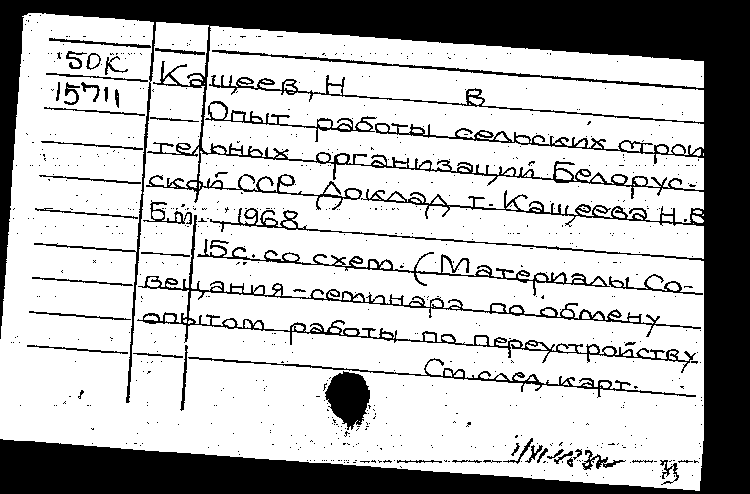 50К
15711
Кащеев, Н В
Опыт работы сельских строи
тельных организаций Белорус-
ской ССР. Доклад т. Кащеева Н.В
Б.м., 1968.
15с. со схем. (Материалы Со-
вещания-семинара по обмену
опытом работы по переустройству
См. след. карт.